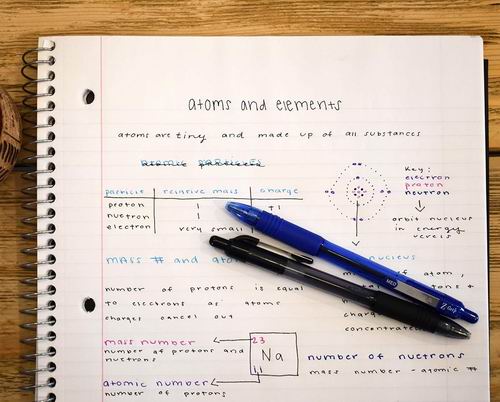 atoms and elements
atoms are tiny and made up of all substances
atomic particles
particle relative mass charge
proton 1 +1
nuetron 1
electron very small
Key:
electron
proton
neutron
orbit nucleus
in energy
MASS # and
nucleus
of atom,
number of protons is equal
to electrons as atoms
charges cancel out
mass number
number of protons and
nuetrons
23
Na
11
atomic number
number of protons
number of nuetrons
mass number - atomic #
MED
Z-Grip